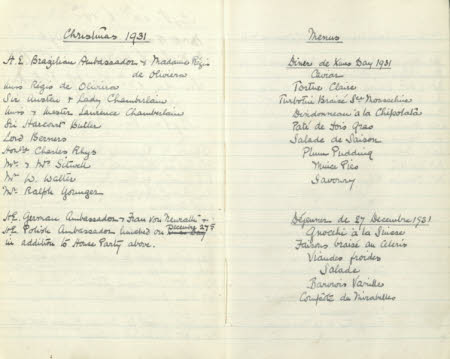 Christmas 1931
H.E. Brazilian Ambassador & Madame Régis
de Oliviera
Miss Régis de Oliviera
Sir Austen & Lady Chamberlain
Miss & Mister Laurence Chamberlain
Sir Harcourt Butler
Lord Berners
Honble Charles Rhys
Mr. & Mrs Sitwell
Mr W. Walton
Mr. Ralph Younger
H.E. German Ambassador & Frau von Neurath &
H.E. Polish Ambassador lunched on December 27th
in addition to House Party above.
Menus
Diner de Xmas Day 1931
Caviar
Tortue Claire
Turbotin Braisé
Dindonneau à la Chipolata
Paté de Fois Gras
Salade de Saison
Plum Pudding
Mince Pies
Savoury
Déjeuner de 27 Decembre 1931
Gnocchi à la Suisse
Faisans braisé au
Viandes froides
Salade
Bavarois Vanille
Compôte de Mirabelles